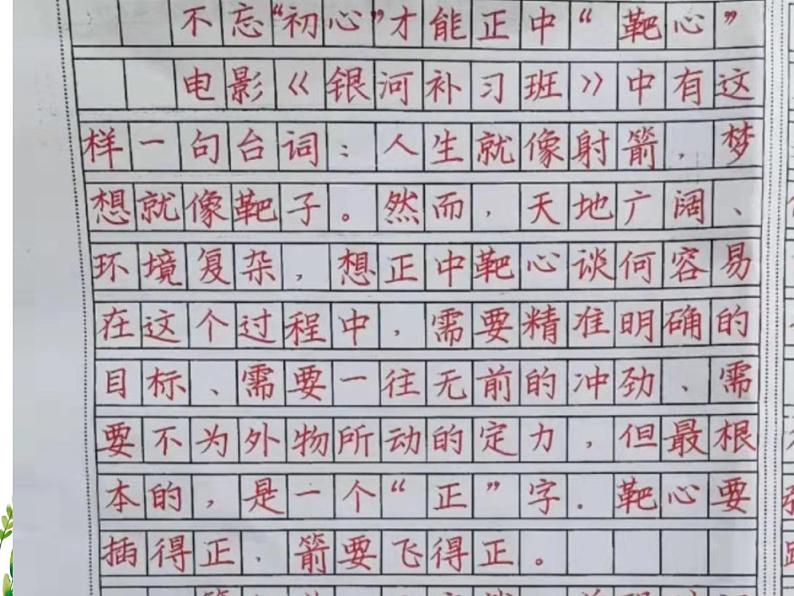 不忘“初心”才能正中“靶心”
电影《银河补习班》中有这
样一句台词：人生就像射箭，梦
想就像靶子。然而，天地广阔、
环境复杂，想正中靶心谈何容易
在这个过程中，需要精准明确的
目标、需要一往无前的冲劲、需
要不为外物所动的定力，但最根
本的，是一个“正”字．靶心要
插得正、箭要飞得正。